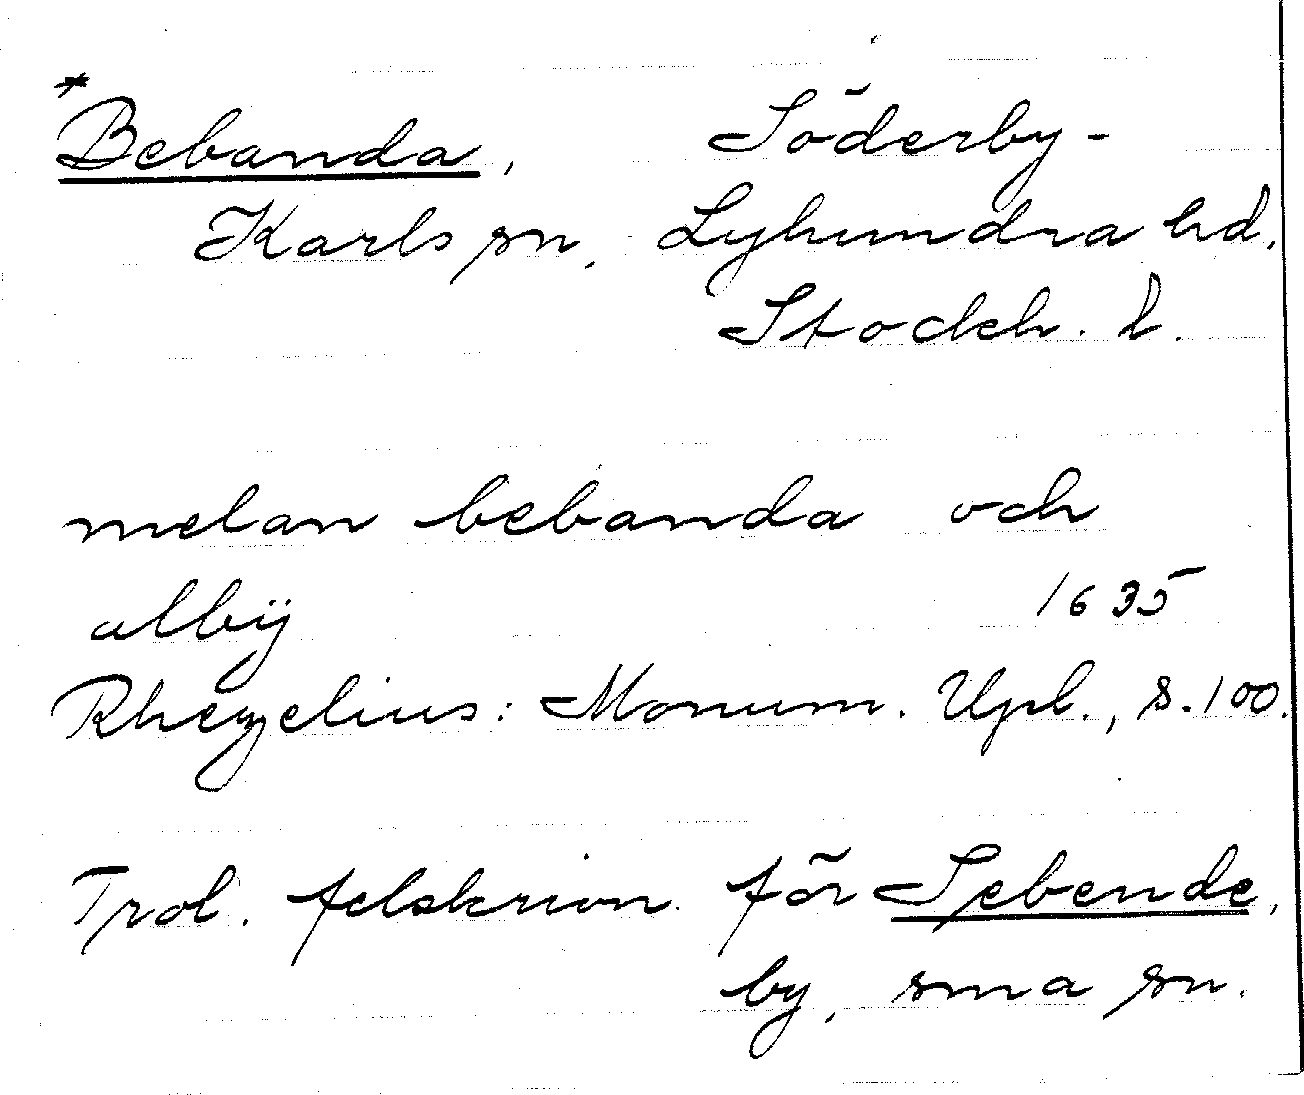 *Bebanda, Söderby-
Karls sn, Lyhundra hd,
Stockh. l.
melan bebanda och
albÿ 1635
Rhezelius: Monum. Upl., s. 100.
Trol. felskrivn. för Spebende,
by, sma sn.